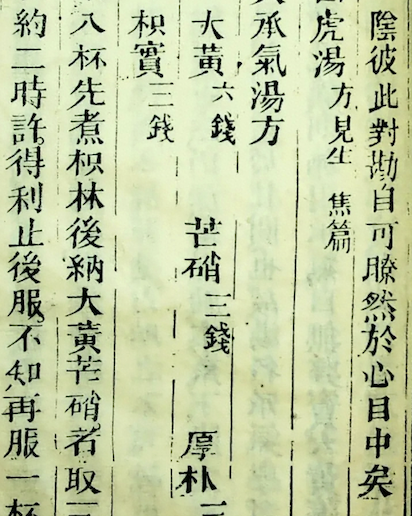 陰彼此對勘自可瞭然於心目中矣
虎湯方見生焦篇
承氣湯方
大黃六錢 芒硝三錢 厚朴
枳實三錢
八杯先煮枳林後納大黃芒硝者取三
約二時許得利止後服不知再服一杯